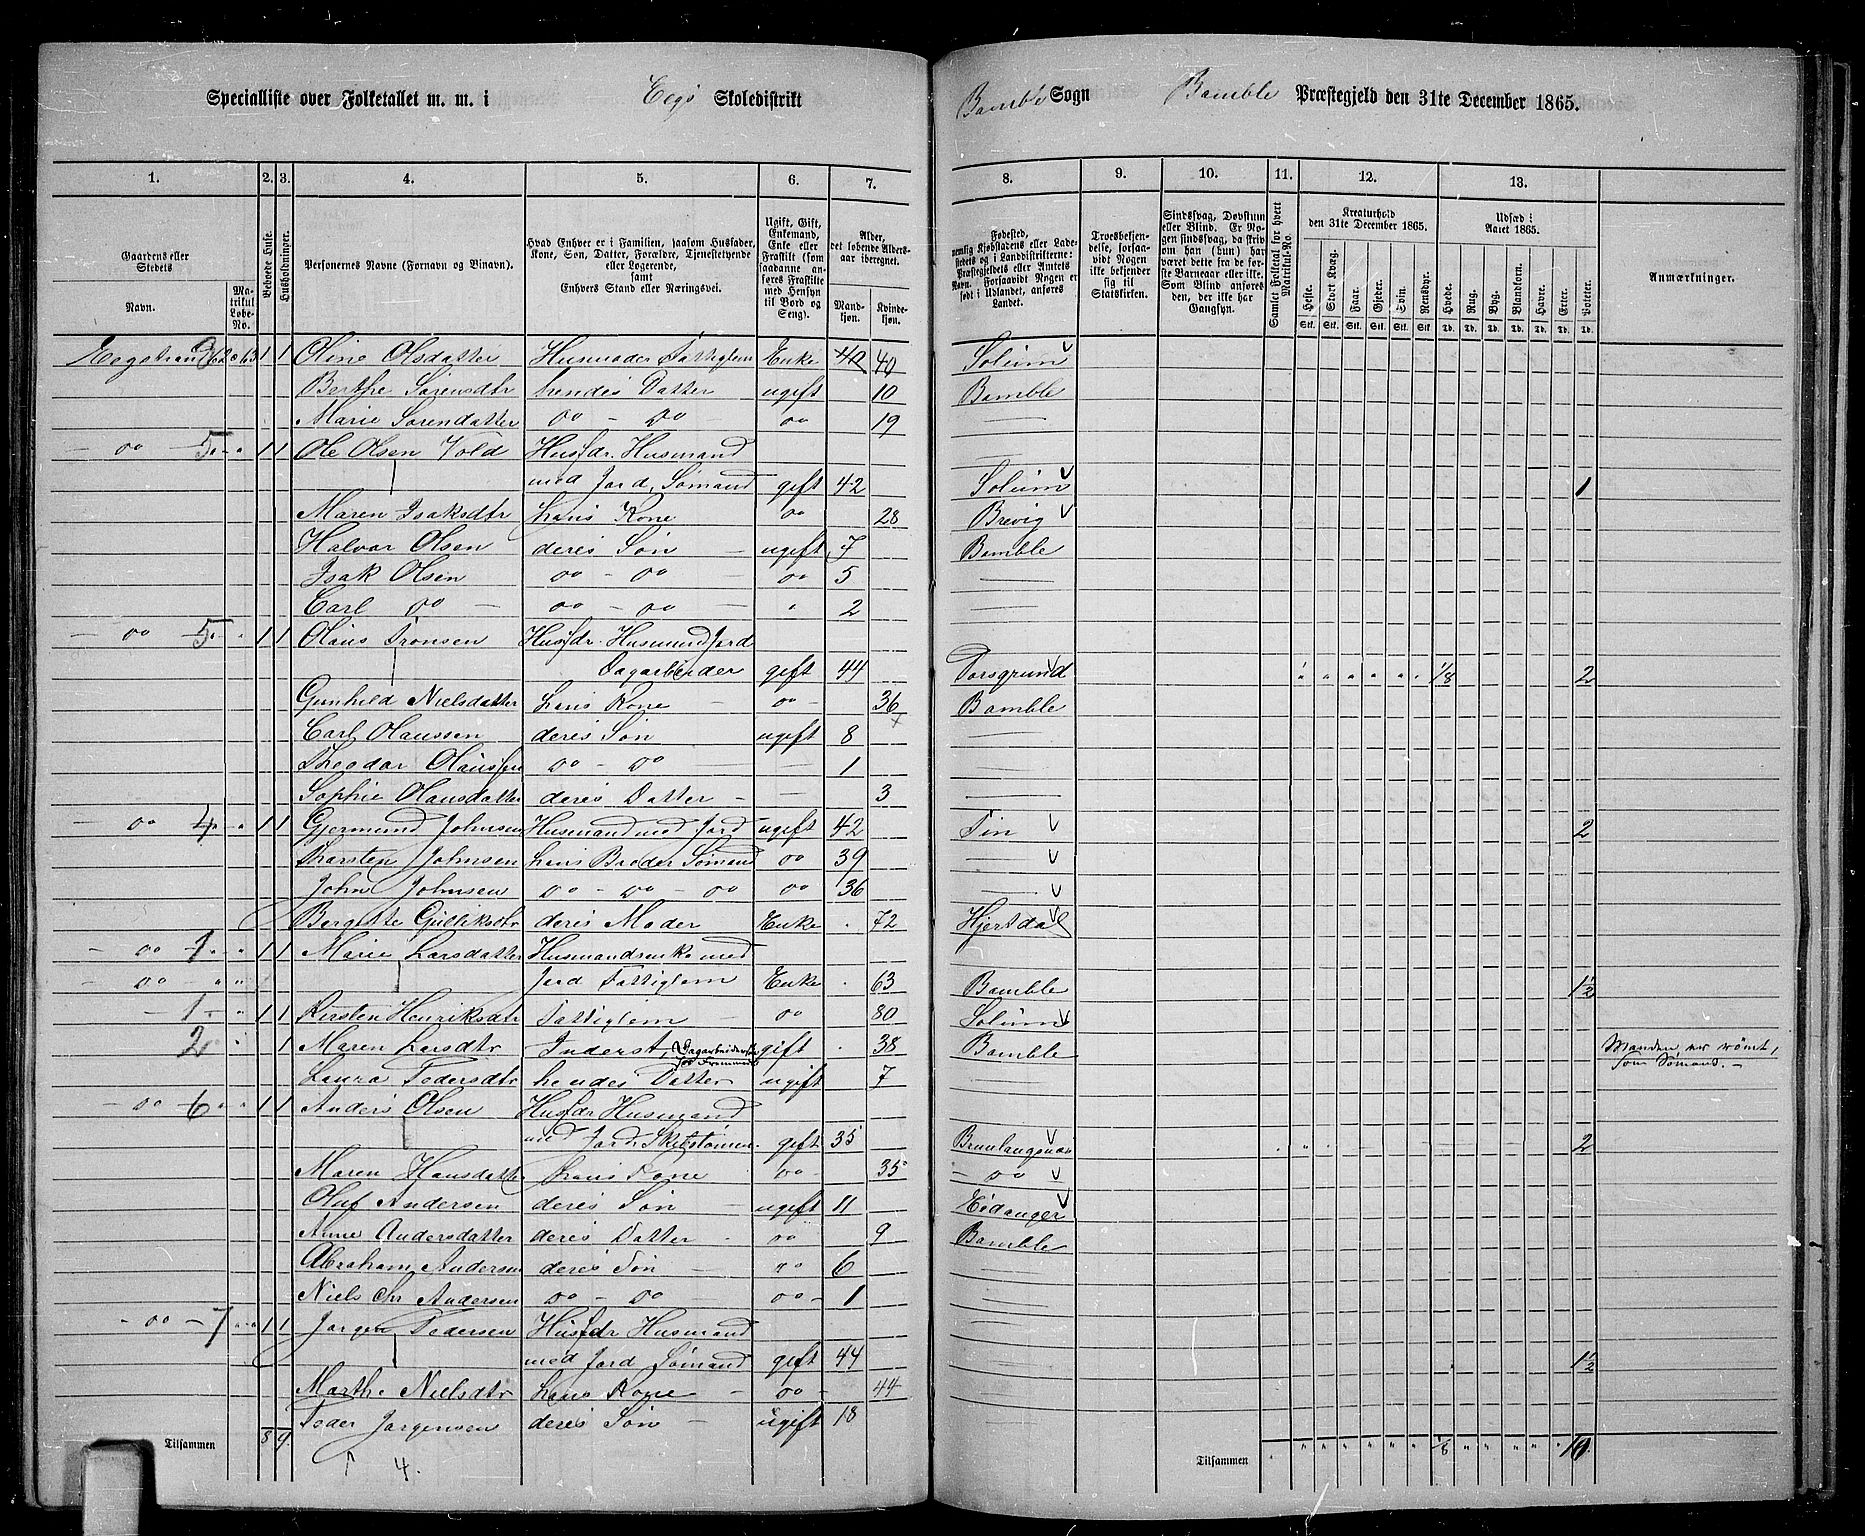 Specialliste over Folketallet m. m. i Eegø Skoledistrikt Bamble Sogn Bamble Præstegjeld den 31te December 1865.
1. 2. 3. 4. 5. 6. 7. 8. 9. 10. 11. 12. 13.
Gaardens eller Stedets
Navn.
Matrikul Løbe-No.
Beboede Huse.
Husholdninger.
Personernes Navne (Fornavn og Vinavn).
Hvad Enhver er i Familien, saasom Husfader, Kone, Søn, Datter, Forældre, Tjenestetyende eller Logerende, samt Enhvers Stand eller Næringsvei.
Ugift, Gift, Enkemand, Enke eller Fraskilt (som saadanne anføres Fraskilte med Hensyn til Bord og Seng).
Alder, det løbende Aldersaar iberegnet.
Mandkjøn.
Kvindekjøn.
Fødested, nemlig Kjøbstadens eller Ladestedets og i Landdistrikterne: Præstegjeldets eller Amtets Navn. Forsaavidt Nogen er født i Udlandet, anføres Landet.
Troesbekjendelse, forsaavidt Nogen ikke bekjender sig til Statskirken.
Sindssvag, Døvstum eller Blind. Er Nogen sindssvag, da skriv om han (hun) har været dette fra de første Barneaar eller ikke. Som Blind ansøres den, der ikke har Gangsyn.
Samlet Folketal for hvert Matrikul-No.
Kreaturhold den 31te December 1865.
Heste. Stort Kvæg. Faar. Gjeder. Svin. Rensdyr.
Udsæd i Aaret 1865.
Hvede. Rug. Byg. Blandkorn. Havre. Erter. Poteter.
Anmærkninger.
Eegstrand 62 o 63 1 1 Oline Olsdatter Husmoder Fattiglem Enke 40 40 Solum
Berthe Sørensdtr hendes Datter ugift 10 Bamble
Marie Sørendatter oo - oo oo 19
- oo 5 - 1 1 Ole Olsen Vold Husfdr. Husmand
med Jord, Sømand gift 42 Solum 1
Maren Isaksdtr hans Kone oo 28 Brevig
Halvor Olsen deres Søn ugift 7 Bamble
Isak Olsen oo - oo oo 5
Carl oo - oo - oo - " 2
- oo 5 - 1 1 Olaus Tronsen Husfdr. Husmand Jord
Dagarbeider gift 44 Porsgrund 1/8 2
Gunhild Nielsdatter hans Kone oo 36 Bamble
Carl Olaussen deres Søn ugift 8
Theodor Olaussen oo - oo 1
Sophie Olausdatter deres Datter - 3
- oo 4 1 1 Gjermund Johnsen Husmand med Jord ugift 42 Tin 2
Thorsten Johnsen hans Broder Sømand oo 39
John Johnsen oo - oo - oo oo 36
Bergitte Gulliksdtr deres Moder Enke . 72 Hjertdal
- oo 1 1 1 Marie Larsdatter Husmandsenke med
- oo Jord Fattiglem Enke . 63 Bamble 1 1/2
- 1 - 1 1 Kirsten Henriksdtr Fattiglem oo 80 Solum
2 1 Maren Larsdtr Inderst, Dagarbeiderske gift . 38 Bamble Manden er rømt, som Sømand. -
Laura Pedersdtr hendes Datter ugift 7
- oo 6 1 1 Anders Olsen Husfdr Husmand
med Jord, Skibstømm. gift 35 Brunlangsnæs 2
Maren Hansdatter hans Kone oo 35 - oo
Oluf Andersen deres Søn ugift 11 Eidanger
Anne Andersdatter deres Datter oo 9 Bamble
Abraham Andersen deres Søn - oo 6
Niels Chr Andersen oo - oo - oo - 1
- oo - 7 1 1 Jørgen Pedersen Husfdr Husmand
med Jord Sømand gift 44 1 1/2
Marthe Nielsdtr hans Kone - oo - 44
Peder Jørgensen deres Søn - ugift 18
Tilsammen 8 9 Tilsammen 1/8 10
4.